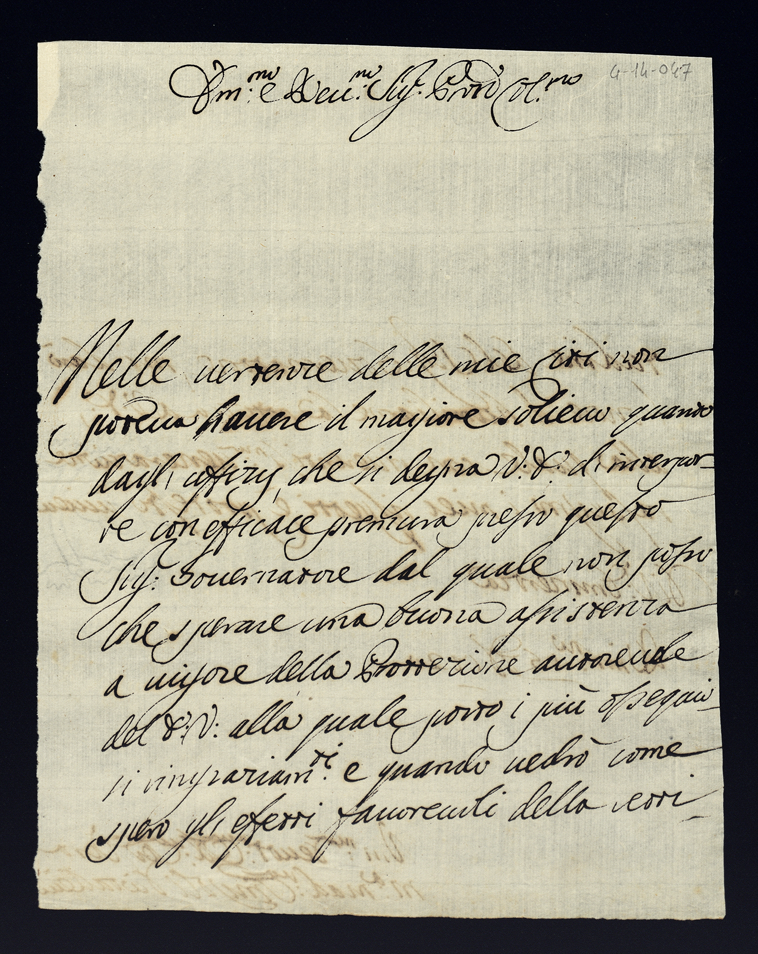 4-14-047
Ill.mo e Rev.mo Sig.r Pron Col.mo
Nelle vertenze delle mie liti non
poteva havere il magiore solievo quando
dagl'offizij, che si degna V: S: di interpor-
re con efficace premura presso questo
Sig.r Governatore dal quale non posso
che sperare una buona assistenza
a vigore della Protezione autorevole
del V: alla quale porto i più ossequio-
si ringraziam.ti e quando vedrò come
spero gli effetti favorevoli della retti-